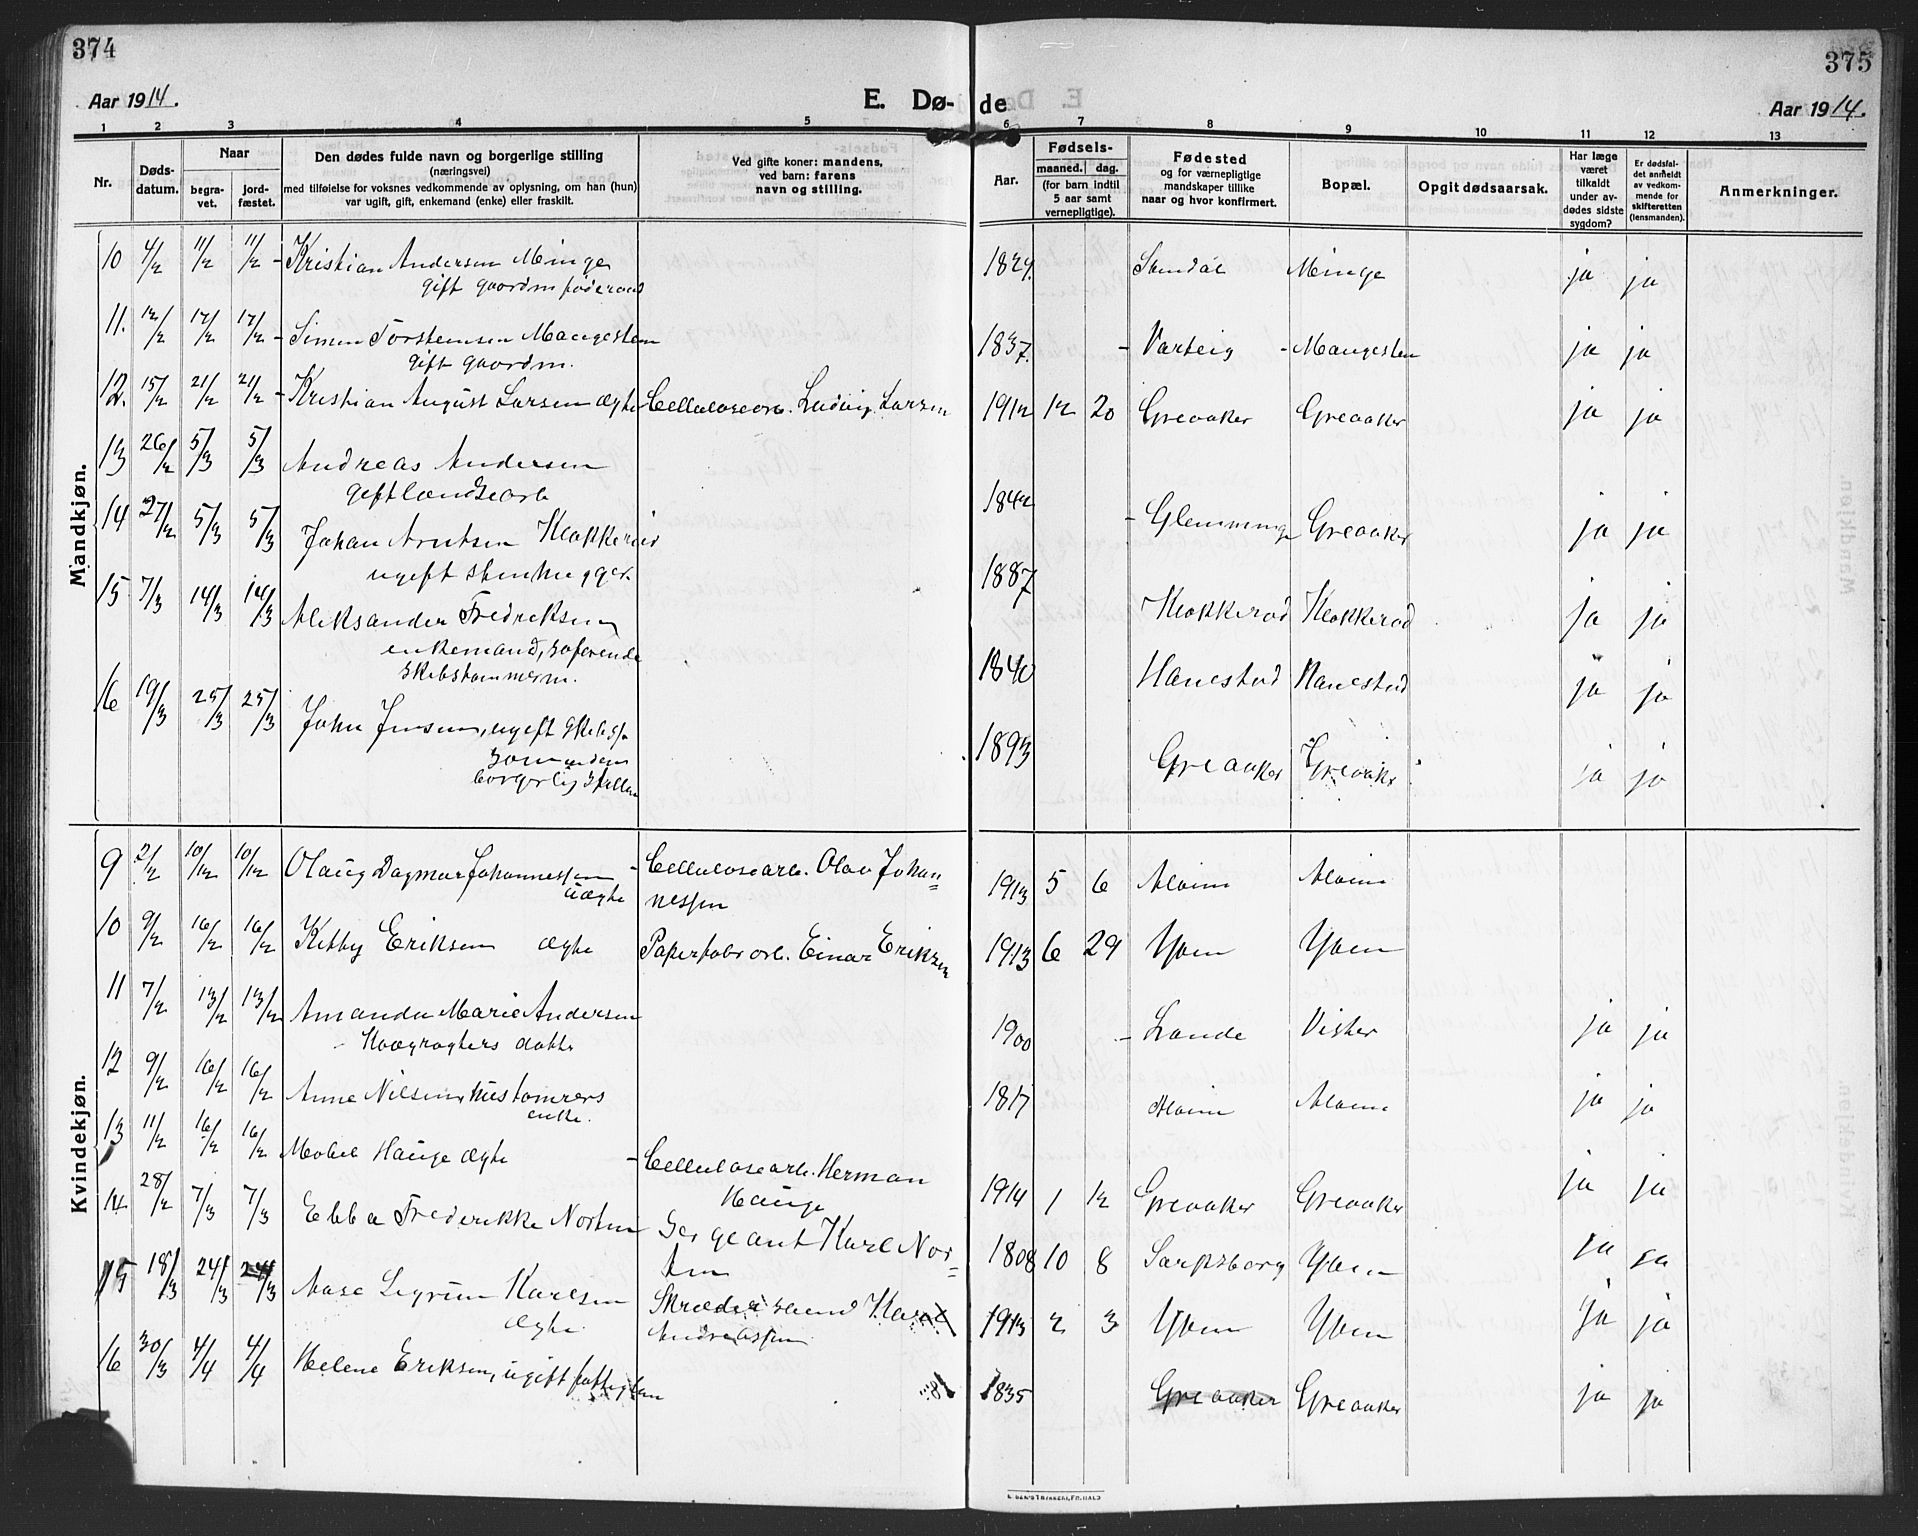 374
375
Aar 1914.
E. Dø-
de
Aar 1914.
1 2 3 4 5 6 7 8 9 10 11 12 13
Nr.
Døds-
datum.
Naar
begra-
vet.
jord-
fæstet.
Den dødes fulde navn og borgerlige stilling
(næringsvei)
med tilføielse for voksnes vedkommende av oplysning, om han (hun)
var ugift, gift, enkemand (enke) eller fraskilt.
Ved gifte koner: mandens,
ved barn: farens
navn og stilling.
Aar.
Fødsels-
maaned. dag.
(for barn indtil
5 aar samt
vernepligtige).
Fødested
og for værnepligtige
mandskaper tillike
naar og hvor konfirmert.
Bopæl.
Opgit dødsaarsak.
Har læge
været
tilkaldt
under av-
dødes sidste
sygdom?
Er dødsfal-
det anmeldt
av vedkom-
mende for
skifteretten
(lensmanden).
Anmerkninger.
Mandkjøn.
10 4/2 11/2 11/2 - Kristian Andersen Minge 1829 Minge ja ja
gift gaardm føderaad
11. 12/2 17/2 17/2 - Simen Torstensen Maugesten 1837. - Varteig - Maugesten ja ja
gift gaardm.
12. 15/2 21/2 21/2 - Kristian August Larsen ægte Cellulosearb. Ludvig Larsen 1912 12 20 Greaaker Greaaker ja ja
13 26/2 5/3 5/3 Andreas Andersen
gift landsearb 1842 - Glemminge Greaaker ja ja
14 27/2 5/3 5/3 Johan Arntsen Klokkerød
ugift stenhugger. 1887 Klokkerød Klokkerød ja ja
15 7/3 14/3 14/3 Aleksander Fredriksen
enkemand, søfarende
skibstømmerm. 1840 Hanestad Hanestad ja ja
16 19/3 25/3 25/3 John Jensen, ugift
1893 Greaaker Greaaker ja ja
borgerlig stilling
Kvindekjøn.
9 2/2 10/2 10/2 Olaug Dagmar Johannessen - Cellulosearb. Olav Johan= 1913 5 6 Alvim Alvim
uægte nessen
10 9/2 16/2 16/2 Kitty Eriksen ægte Papirfabr arb. Einar Eriksen 1913 6 29 Yven Yven
11 7/2 13/2 13/2 Amanda Marie Andersen 1900 - Lande Vister ja ja
12 9/2 16/2 16/2 Anne Nilsen, hustømrers 1817 Alvim Alvim ja ja
enke.
13 11/2 16/2 16/2 Mabel Hauge ægte - Cellulosearb. Herman
Hauge 1914 1 12 Greaaker Greaaker ja ja
14 28/2 7/3 7/3 Ebba Frederikke Norten Sergeant Karl Nor=
ten 1808 10 8 Sarpsborg Yven ja ja
15 18/3 24/3 24/3 Aase Sigrun Karlsen Skrædersvend Karl 1913 2 3 Yven Yven ja ja
ægte Andreassen
16 30/3 4/4 4/4 Helene Eriksen, ugift fattiglem 18 1835 Greaaker Greaaker ja ja